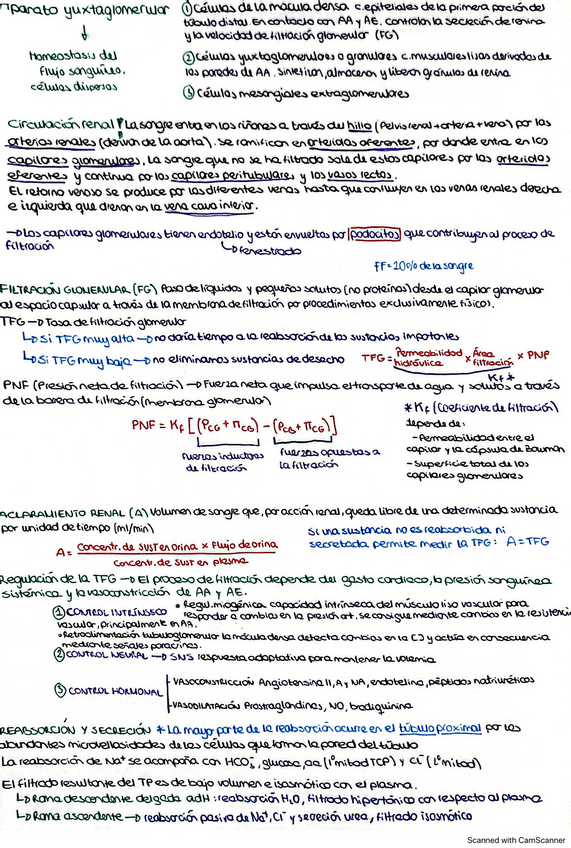 Aparato yuxtaglomerular ① Células de la mácula densa c.epiteliales de la primera porción del
túbulo distal. En contacto con AA y AE. controlan la secreción de renina
y la velocidad de filtración glomerular (FG)
Homeostasis del
flujo sanguíneo.
células dispersas
② Células yuxtaglomerulares o granulares c.musculares lisas derivadas de
las paredes de AA. sintetizan, almacenan y liberan gránulos de renina
③ Células mesangiales extraglomerulares
Circulación renal La sangre entra en los riñones a través del hilio (Pelvis renal + arteria + vena) por las
arterias renales (derivan de la aorta). Se ramifican en arteriolas aferentes, por donde entra en los
capilares glomerulares. La sangre que no se ha filtrado sale de estos capilares por las arteriolas
eferentes y continua por los capilares peritubulares y los vasos rectos.
El retorno venoso se produce por las diferentes venas hasta que confluyen en las venas renales derecha
e izquierda que drenan en la vena cava inferior.
→ Los capilares glomerulares tienen endotelio y están envueltos por podocitos que contribuyen al proceso de
filtración
↳ fenestrado
FF = 20% de la sangre
FILTRACIÓN GLOMERULAR (FG) Paso de líquidos y pequeños solutos (no proteínas) desde el capilar glomerular
al espacio capsular a través de la membrana de filtración por procedimientos exclusivamente físicos.
TFG → Tasa de filtración glomerular
↳ Si TFG muy alta → no daría tiempo a la reabsorción de las sustancias importantes
↳ Si TFG muy baja → no eliminamos sustancias de desecho
TFG = Permeabilidad hidráulica × Área filtración × PNP
Kf *
PNF (Presión neta de filtración) → Fuerza neta que impulsa el transporte de agua y solutos a través
de la barrera de filtración (membrana glomerular)
PNF = Kf [(PCG + ΠCB) - (PCB + ΠCG)]
fuerzas inductoras
de filtración
fuerzas opuestas a
la filtración
* Kf (Coeficiente de filtración)
depende de:
- Permeabilidad entre el
capilar y la cápsula de Bowman
- Superficie total de los
capilares glomerulares
ACLARAMIENTO RENAL (A) Volumen de sangre que, por acción renal, queda libre de una determinada sustancia
por unidad de tiempo (ml/min)
A = Concentr. de sust en orina × Flujo de orina
Concentr. de sust en plasma
Si una sustancia no es reabsorbida ni
secretada permite medir la TFG: A = TFG
Regulación de la TFG → El proceso de filtración depende del gasto cardiaco, la presión sanguínea
sistémica y la vasoconstricción de AA y AE.
① CONTROL INTRÍNSECO • Regul. miogénica capacidad intrínseca del músculo liso vascular para
responder a cambios en la presión art. se consigue mediante cambios en la resistencia
vascular, principalmente en AA.
• Retroalimentación tubuloglomerular la mácula densa detecta cambios en la [] y actúa en consecuencia
mediante señales paracrinas.
② CONTROL NEURAL → SNS respuesta adaptativa para mantener la volemia
③ CONTROL HORMONAL
VASOCONSTRICCIÓN Angiotensina II, A y NA, endotelina, péptidos natriuréticos
VASODILATACIÓN Prostraglandinas, NO, bradiquinina
REABSORCIÓN Y SECRECIÓN * La mayor parte de la reabsorción ocurre en el túbulo proximal por las
abundantes microvellosidades de las células que forman la pared del túbulo
La reabsorción de Na⁺ se acompaña con HCO₃⁻, glucosa, aa (1ª mitad TCP) y Cl⁻ (2ª mitad)
El filtrado resultante del TP es de bajo volumen e isosmótico con el plasma.
↳ Rama descendente delgada adH: reabsorción H₂O, filtrado hipertónico con respecto al plasma
↳ Rama ascendente → reabsorción pasiva de Na⁺, Cl⁻ y secreción urea, filtrado isosmótico
Scanned with CamScanner